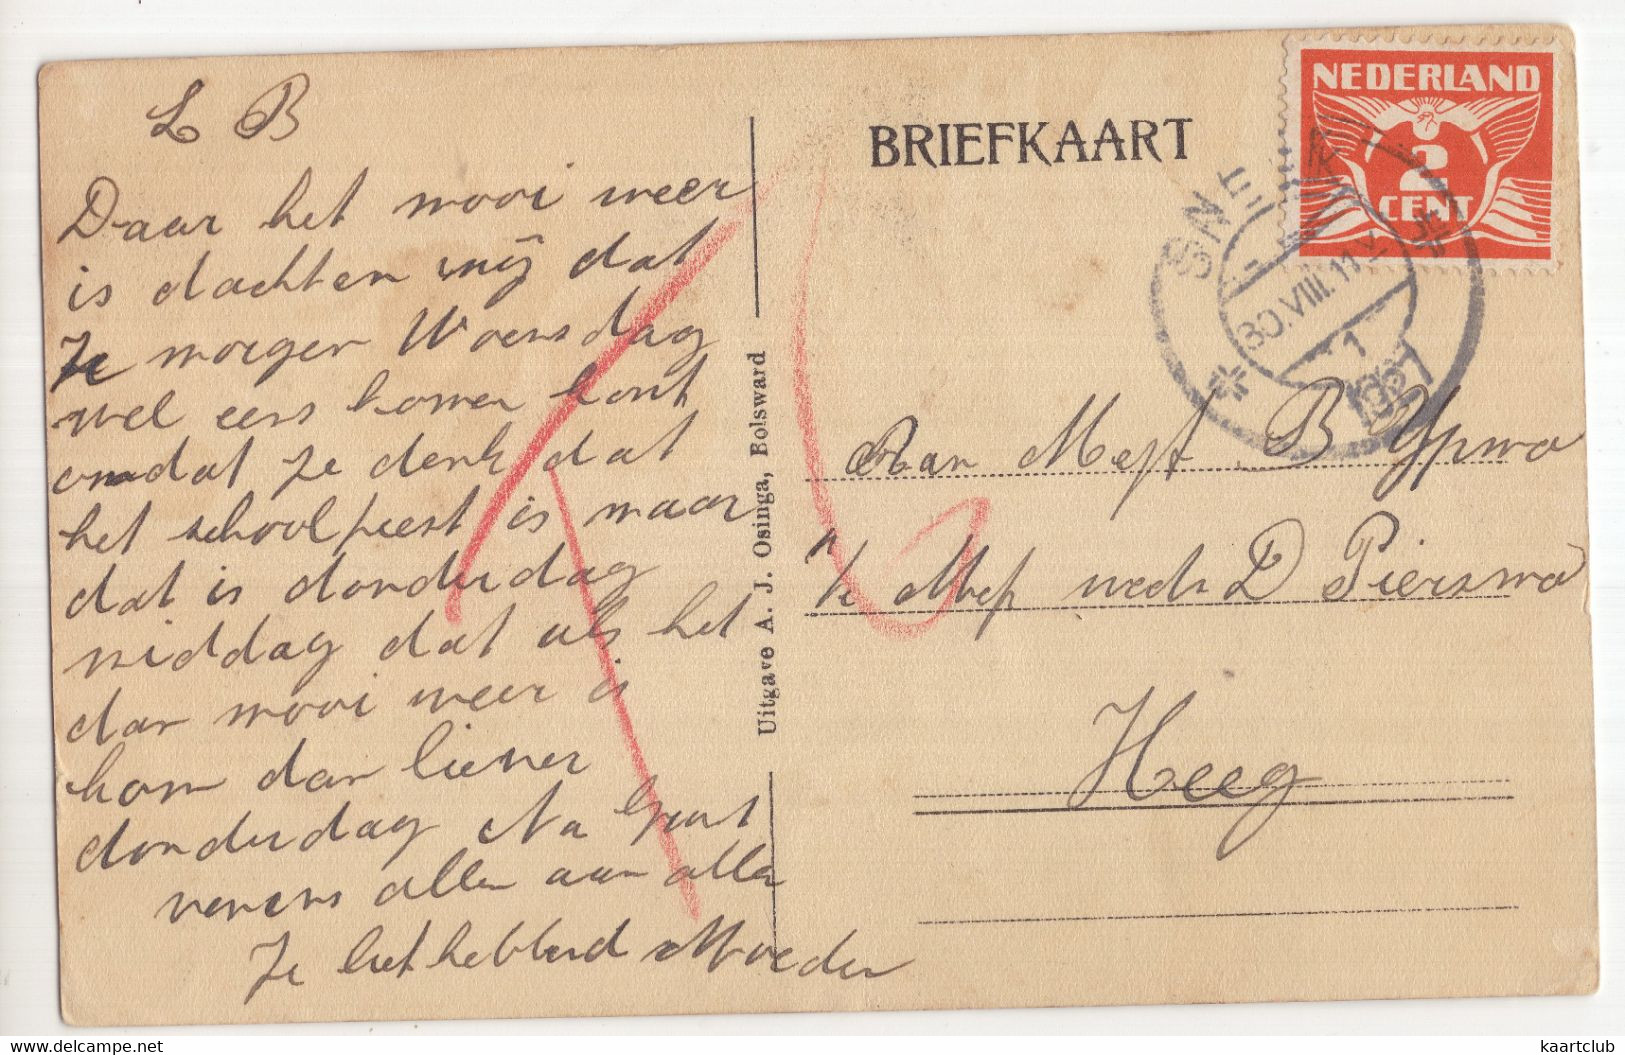 L B
Daar het mooi weer
is dachten wij dat
Je morgen Woensdag
wel eens komen kont
omdat Je denk dat
het schoolfeest is maar
dat is donderdag
middag dat als het
dan mooi weer is
kom dan liever
donderdag Na Groet
verens allen aan alle
Je liefhebbend Moeder
Uitgave A. J. Osinga, Bolsward
BRIEFKAART
NEDERLAND
2
CENT
SNEEK
30.VIII.11
1
1927
Aan Mejf B Ypma
Mej wed D Piersma
Heeg
www.delcampe.net
kaartclub